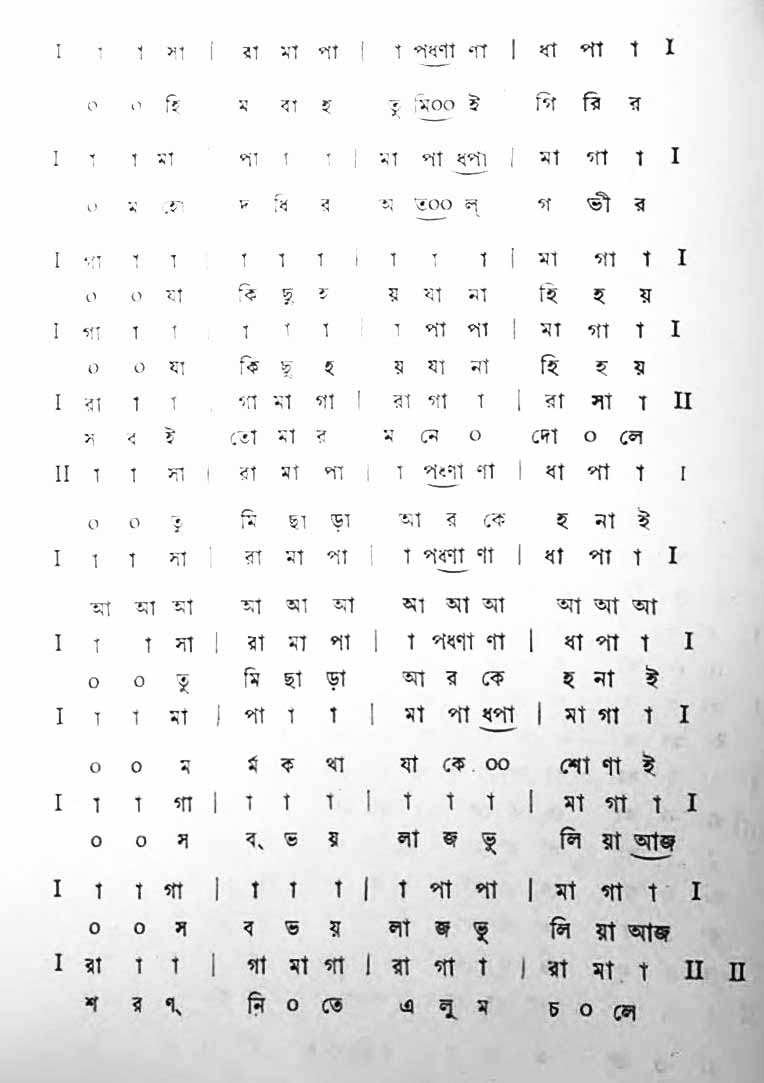 I া া সা | রা মা পা | া পধণা ণা | ধা পা া I
০ ০ হি ম বা হ তু মি০০ ই গি রি র
I া া মা পা া া | মা পা ধপা | মা গা া I
০ ম হো দ ধি র অ ত০০ ল্ গ ভী র
I গা া া | া া া | া া া | মা গা া I
০ ০ যা কি ছু হ য় যা না হি হ য়
I গা া া | া া া | া পা পা | মা গা া I
০ ০ যা কি ছু হ য় যা না হি হ য়
I রা া া | গা মা গা | রা গা া | রা সা া II
স ব ই তো মা র ম নে ০ দো ০ লে
II া া সা | রা মা পা | া পধণা ণা | ধা পা া I
০ ০ তু মি ছা ড়া আ র কে হ না ই
I া া সা | রা মা পা | া পধণা ণা | ধা পা া I
আ আ আ আ আ আ আ আ আ আ আ আ
I া া সা | রা মা পা | া পধণা ণা | ধা পা া I
০ ০ তু মি ছা ড়া আ র কে হ না ই
I া া মা | পা া া | মা পা ধপা | মা গা া I
০ ০ ম র্ম ক থা যা কে.০০ শো ণা ই
I া া গা | া া া | া া া | মা গা া I
০ ০ স ব্ ভ য় লা জ ভু লি য়া আজ
I া া গা | া া া | া পা পা | মা গা া I
০ ০ স ব ভ য় লা জ ভু লি য়া আজ
I রা া া | গা মা গা | রা গা া | রা মা া II II
শ র ণ্ নি ০ তে এ লু ম চ ০ লে